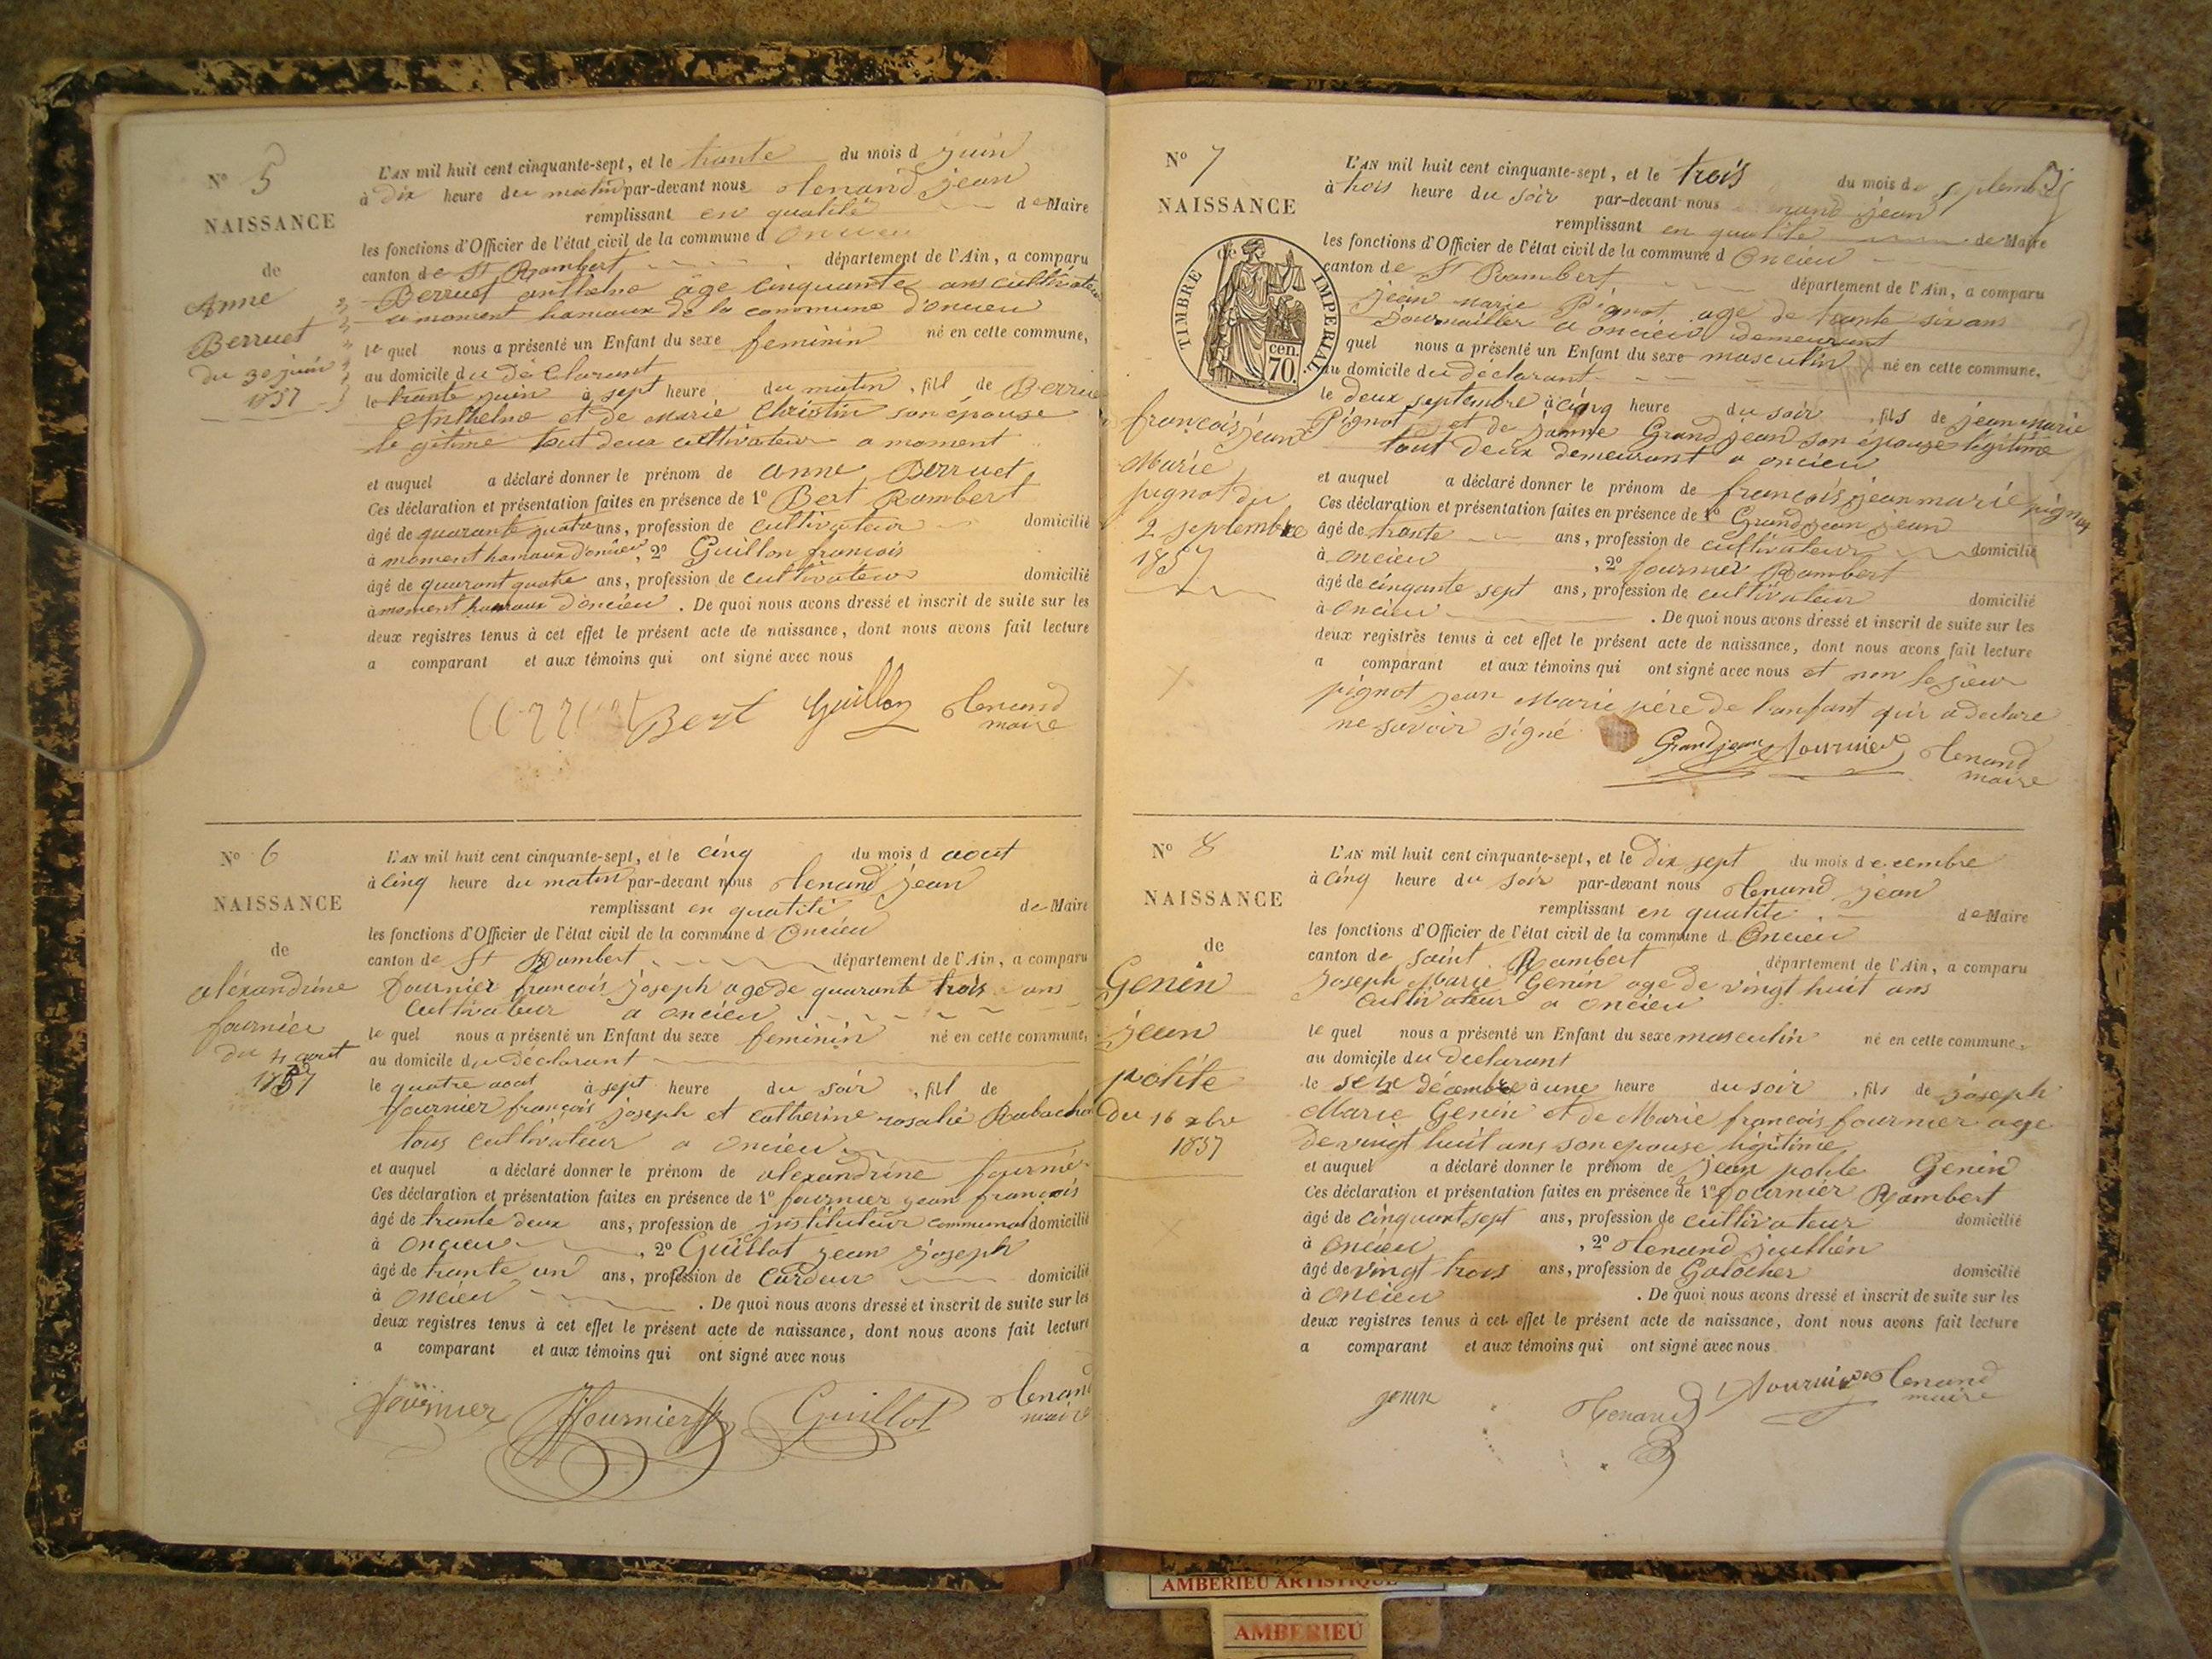 N° 5
NAISSANCE
de
Anne
Berruet
du 30 juin
1857
L'AN mil huit cent cinquante-sept, et le trante du mois d juin
à dix heure du matin par-devant nous Renand jean
remplissant en qualité de Maire
les fonctions d'Officier de l'état civil de la commune d oncieu
canton de St Rambert département de l'Ain, a comparu
Berruet anthelme âge cinquante ans cultivateur
a moment hamaux de la commune d'oncieu
le quel nous a présenté un Enfant du sexe feminin né en cette commune,
au domicile du déclarant
le trante juin à sept heure du matin, fill de Berruet
Anthelme et de Marie Christin son épouse
le gitime tout deux cultivateur a moment
et auquel a déclaré donner le prénom de anne Berruet
Ces déclaration et présentation faites en présence de 1° Bert Rambert
âgé de quarante quatre ans, profession de cultivateur domicilié
à moment hamaux d'oncieu, 2° Guillon francois
âgé de quarant quatre ans, profession de cultivateur domicilié
à moment hamaux d'oncieu. De quoi nous avons dressé et inscrit de suite sur les
deux registres tenus à cet effet le présent acte de naissance, dont nous avons fait lecture
a comparant et aux témoins qui ont signé avec nous
Bert Guillon Renand
maire
N° 6
NAISSANCE
de
alexandrine
fournier
du 4 aout
1857
L'AN mil huit cent cinquante-sept, et le cinq du mois d aout
à cinq heure du matin par-devant nous Renand jean
remplissant en qualité de Maire
les fonctions d'Officier de l'état civil de la commune d oncieu
canton de St Rambert département de l'Ain, a comparu
fournier françois joseph age de quarante trois ans
cultivateur a oncieu
le quel nous a présenté un Enfant du sexe feminin né en cette commune,
au domicile du déclarant
le quatre aout à sept heure du soir, fill de
fournier françois joseph et catherine rosalie
tous cultivateur a oncieu
et auquel a déclaré donner le prénom de alexandrine fournier
Ces déclaration et présentation faites en présence de 1° fournier jean françois
âgé de trante deux ans, profession de instituteur communal domicilié
à oncieu, 2° Guillot jean joseph
âgé de trante un ans, profession de cardeur domicilié
à oncieu. De quoi nous avons dressé et inscrit de suite sur les
deux registres tenus à cet effet le présent acte de naissance, dont nous avons fait lecture
a comparant et aux témoins qui ont signé avec nous
fournier fournier Guillot Renand
maire
N° 7
NAISSANCE
de
TIMBRE IMPERIAL
70 cen.
françois jean
Marie
pignot du
2 septembre
1857
L'AN mil huit cent cinquante-sept, et le trois du mois de septembre
à trois heure du soir par-devant nous Renand jean
remplissant en qualité de Maire
les fonctions d'Officier de l'état civil de la commune d oncieu
canton de St Rambert département de l'Ain, a comparu
jean marie Pignot age de trante six ans
journailler a oncieu demeurant
quel nous a présenté un Enfant du sexe masculin né en cette commune,
du domicile du déclarant
le deux septembre à cinq heure du soir, fils de jean Marie
Pignot et de janne Grandjean son épouse légitime
tout deux demeurant a oncieu
et auquel a déclaré donner le prénom de françois jean marie pignot
Ces déclaration et présentation faites en présence de 1° Grandjean jean
âgé de trante ans, profession de cultivateur domicilié
à oncieu, 2° fournier Rambert
âgé de cinqante sept ans, profession de cultivateur domicilié
à oncieu. De quoi nous avons dressé et inscrit de suite sur les
deux registres tenus à cet effet le présent acte de naissance, dont nous avons fait lecture
a comparant et aux témoins qui ont signé avec nous et non le sieur
pignot jean Marie père de l'anfant qui a declare
ne savoir signé
Grandjean fournier Renand
maire
N° 8
NAISSANCE
de
Genin
jean
polite
du 16 xbre
1857
L'AN mil huit cent cinquante-sept, et le dix sept du mois d ecembre
à cinq heure du soir par-devant nous Renand jean
remplissant en qualité de Maire
les fonctions d'Officier de l'état civil de la commune d oncieu
canton de saint Rambert département de l'Ain, a comparu
joseph Marie Genin age de vingt huit ans
cultivateur a oncieu
le quel nous a présenté un Enfant du sexe masculin né en cette commune,
au domicile du declarant
le seize décembre à une heure du soir, fils de joseph
Marie Genin et de Marie françois fournier age
de vingt huit ans son epouse légitime
et auquel a déclaré donner le prénom de jean polite Genin
Ces déclaration et présentation faites en présence de 1° fournier Rambert
âgé de cinquant sept ans, profession de cultivateur domicilié
à oncieu, 2° Renand jullien
âgé de vingt trois ans, profession de Galocher domicilié
à oncieu. De quoi nous avons dressé et inscrit de suite sur les
deux registres tenus à cet effet le présent acte de naissance, dont nous avons fait lecture
a comparant et aux témoins qui ont signé avec nous
genin Renand fournier Renand
maire
AMBERIEU ARTISTIQUE
AMBERIEU